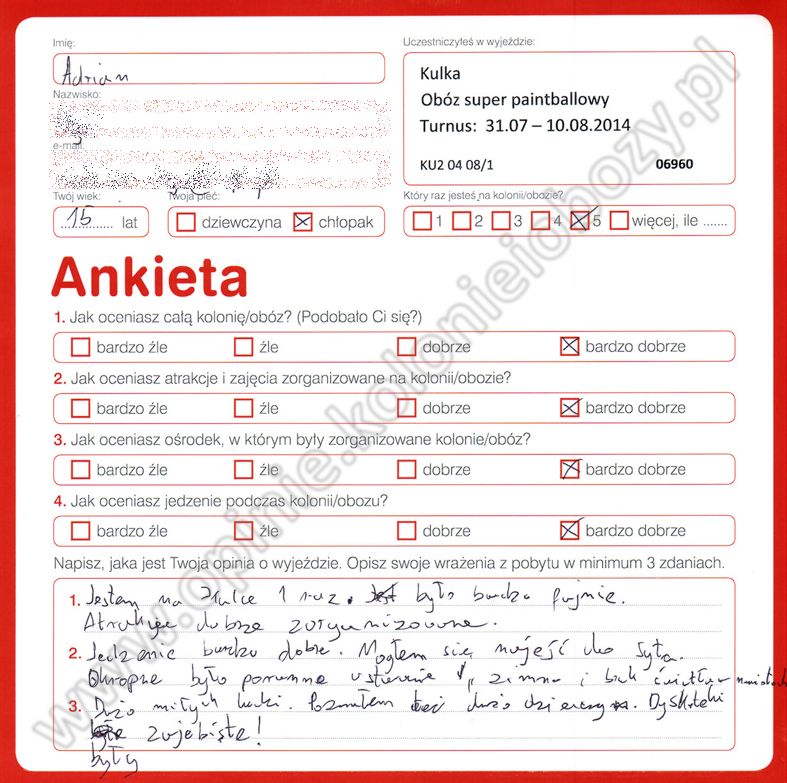 Imię:
Adrian
Uczestniczyłeś w wyjeździe:
Kulka
Obóz super paintballowy
Turnus: 31.07 – 10.08.2014
KU2 04 08/1 06960
Nazwisko:
e-mail:
Twój wiek:
15 lat
Twoja płeć:
dziewczyna chłopak
Który raz jesteś na kolonii/obozie?
1 2 3 4 5 więcej, ile .......
Ankieta
1. Jak oceniasz całą kolonię/obóz? (Podobało Ci się?)
bardzo źle źle dobrze bardzo dobrze
2. Jak oceniasz atrakcje i zajęcia zorganizowane na kolonii/obozie?
bardzo źle źle dobrze bardzo dobrze
3. Jak oceniasz ośrodek, w którym były zorganizowane kolonie/obóz?
bardzo źle źle dobrze bardzo dobrze
4. Jak oceniasz jedzenie podczas kolonii/obozu?
bardzo źle źle dobrze bardzo dobrze
Napisz, jaka jest Twoja opinia o wyjeździe. Opisz swoje wrażenia z pobytu w minimum 3 zdaniach.
1. Jestem na Kulce 1 raz. było bardzo fajnie.
Atrakcje dobrze zorganizowane.
2. Jedzenie bardzo dobre. Mogłem się najeść do syta.
Okropne było poranne wstawanie zimna i brak
3. Dużo miłych ludzi. Poznałem dużo dziewczyn. Dyskoteki
zajebiste!
były
www.opinie.kolonieiobozy.pl